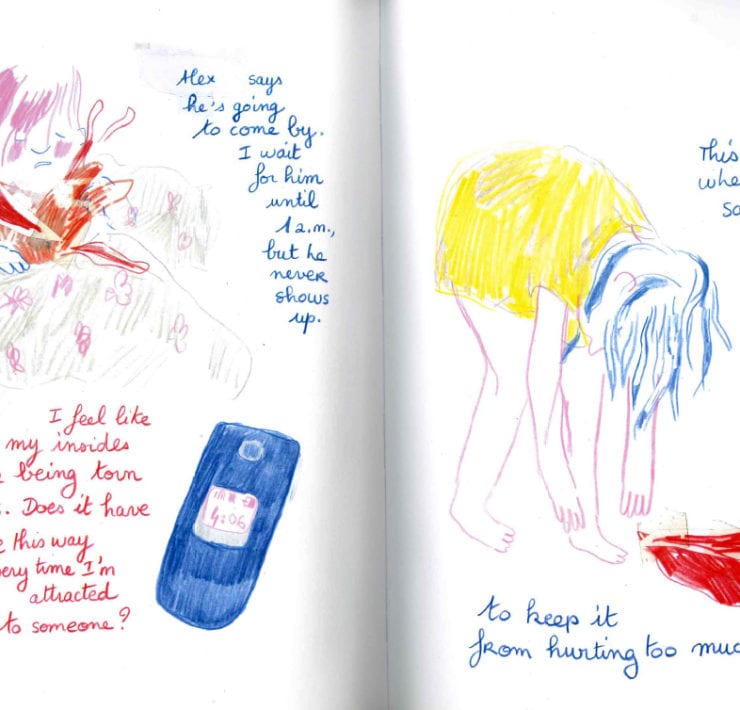 Alex says
he's going
to come by.
I wait
for him
until
1 a.m.,
but he
never
shows
up.
I feel like
my insides
being torn
Does it have
this way
ery time I'm
attracted
to someone?
4:06
This
whe
so
to keep it
from hurting too muc